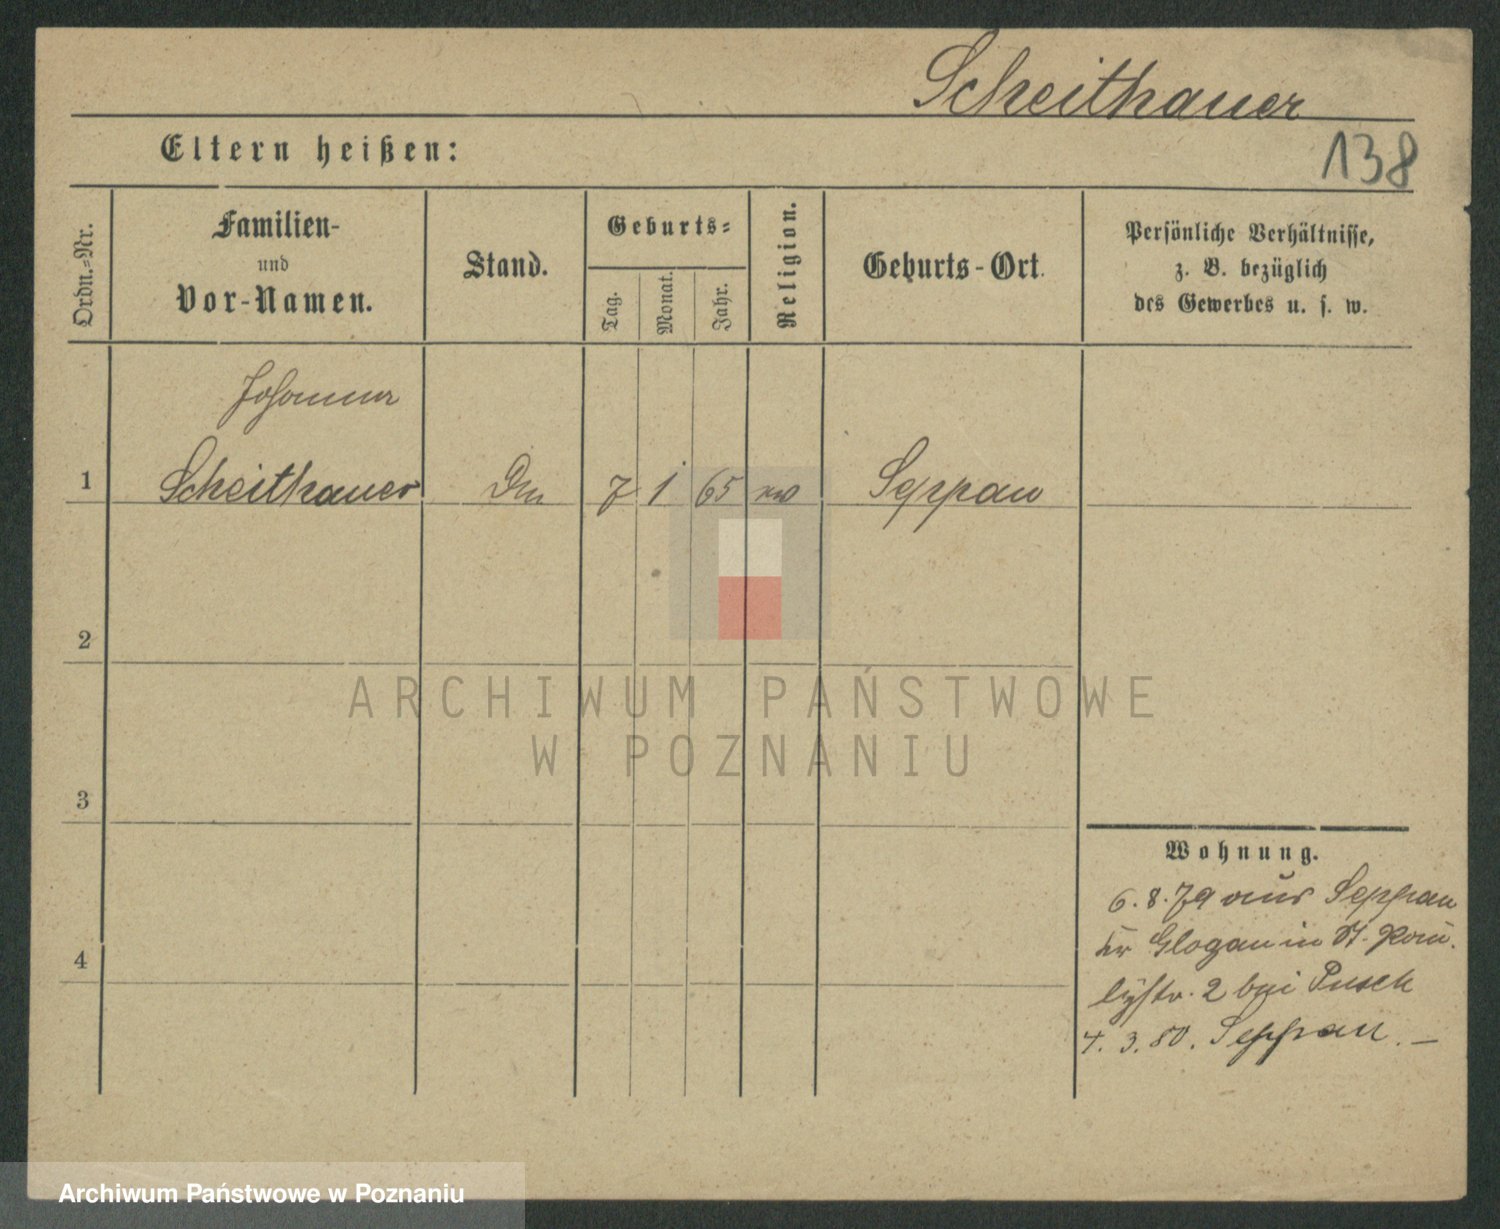 Scheithauer
138
Eltern heißen:
Ordn.-Nr.
Familien-
und
Vor-Namen.
Stand.
Geburts-
Tag.
Monat.
Jahr.
Religion.
Geburts-Ort.
Persönliche Verhältnisse,
z. B. bezüglich
des Gewerbes u. s. w.
Johanna
1 Scheithauer 7 1 65 ev Seppau
2
3
4
Wohnung.
6.8.79 aus Seppau
Kr Glogau in St.
2 bei Pusch
4.3.80. Seppau. —
ARCHIWUM PAŃSTWOWE
W POZNANIU
Archiwum Państwowe w Poznaniu